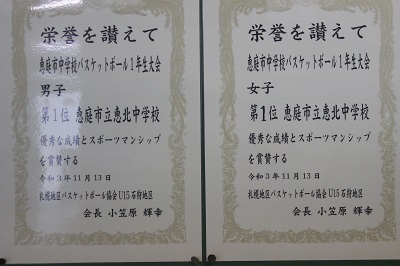 栄誉を讃えて
恵庭市中学校バスケットボール1年生大会
男子
第1位 恵庭市立恵北中学校
優秀な成績とスポーツマンシップ
を賞賛する
令和3年11月13日
札幌地区バスケットボール協会U15石狩地区
会長 小笠原 輝幸
栄誉を讃えて
恵庭市中学校バスケットボール1年生大会
女子
第1位 恵庭市立恵北中学校
優秀な成績とスポーツマンシップ
を賞賛する
令和3年11月13日
札幌地区バスケットボール協会U15石狩地区
会長 小笠原 輝幸